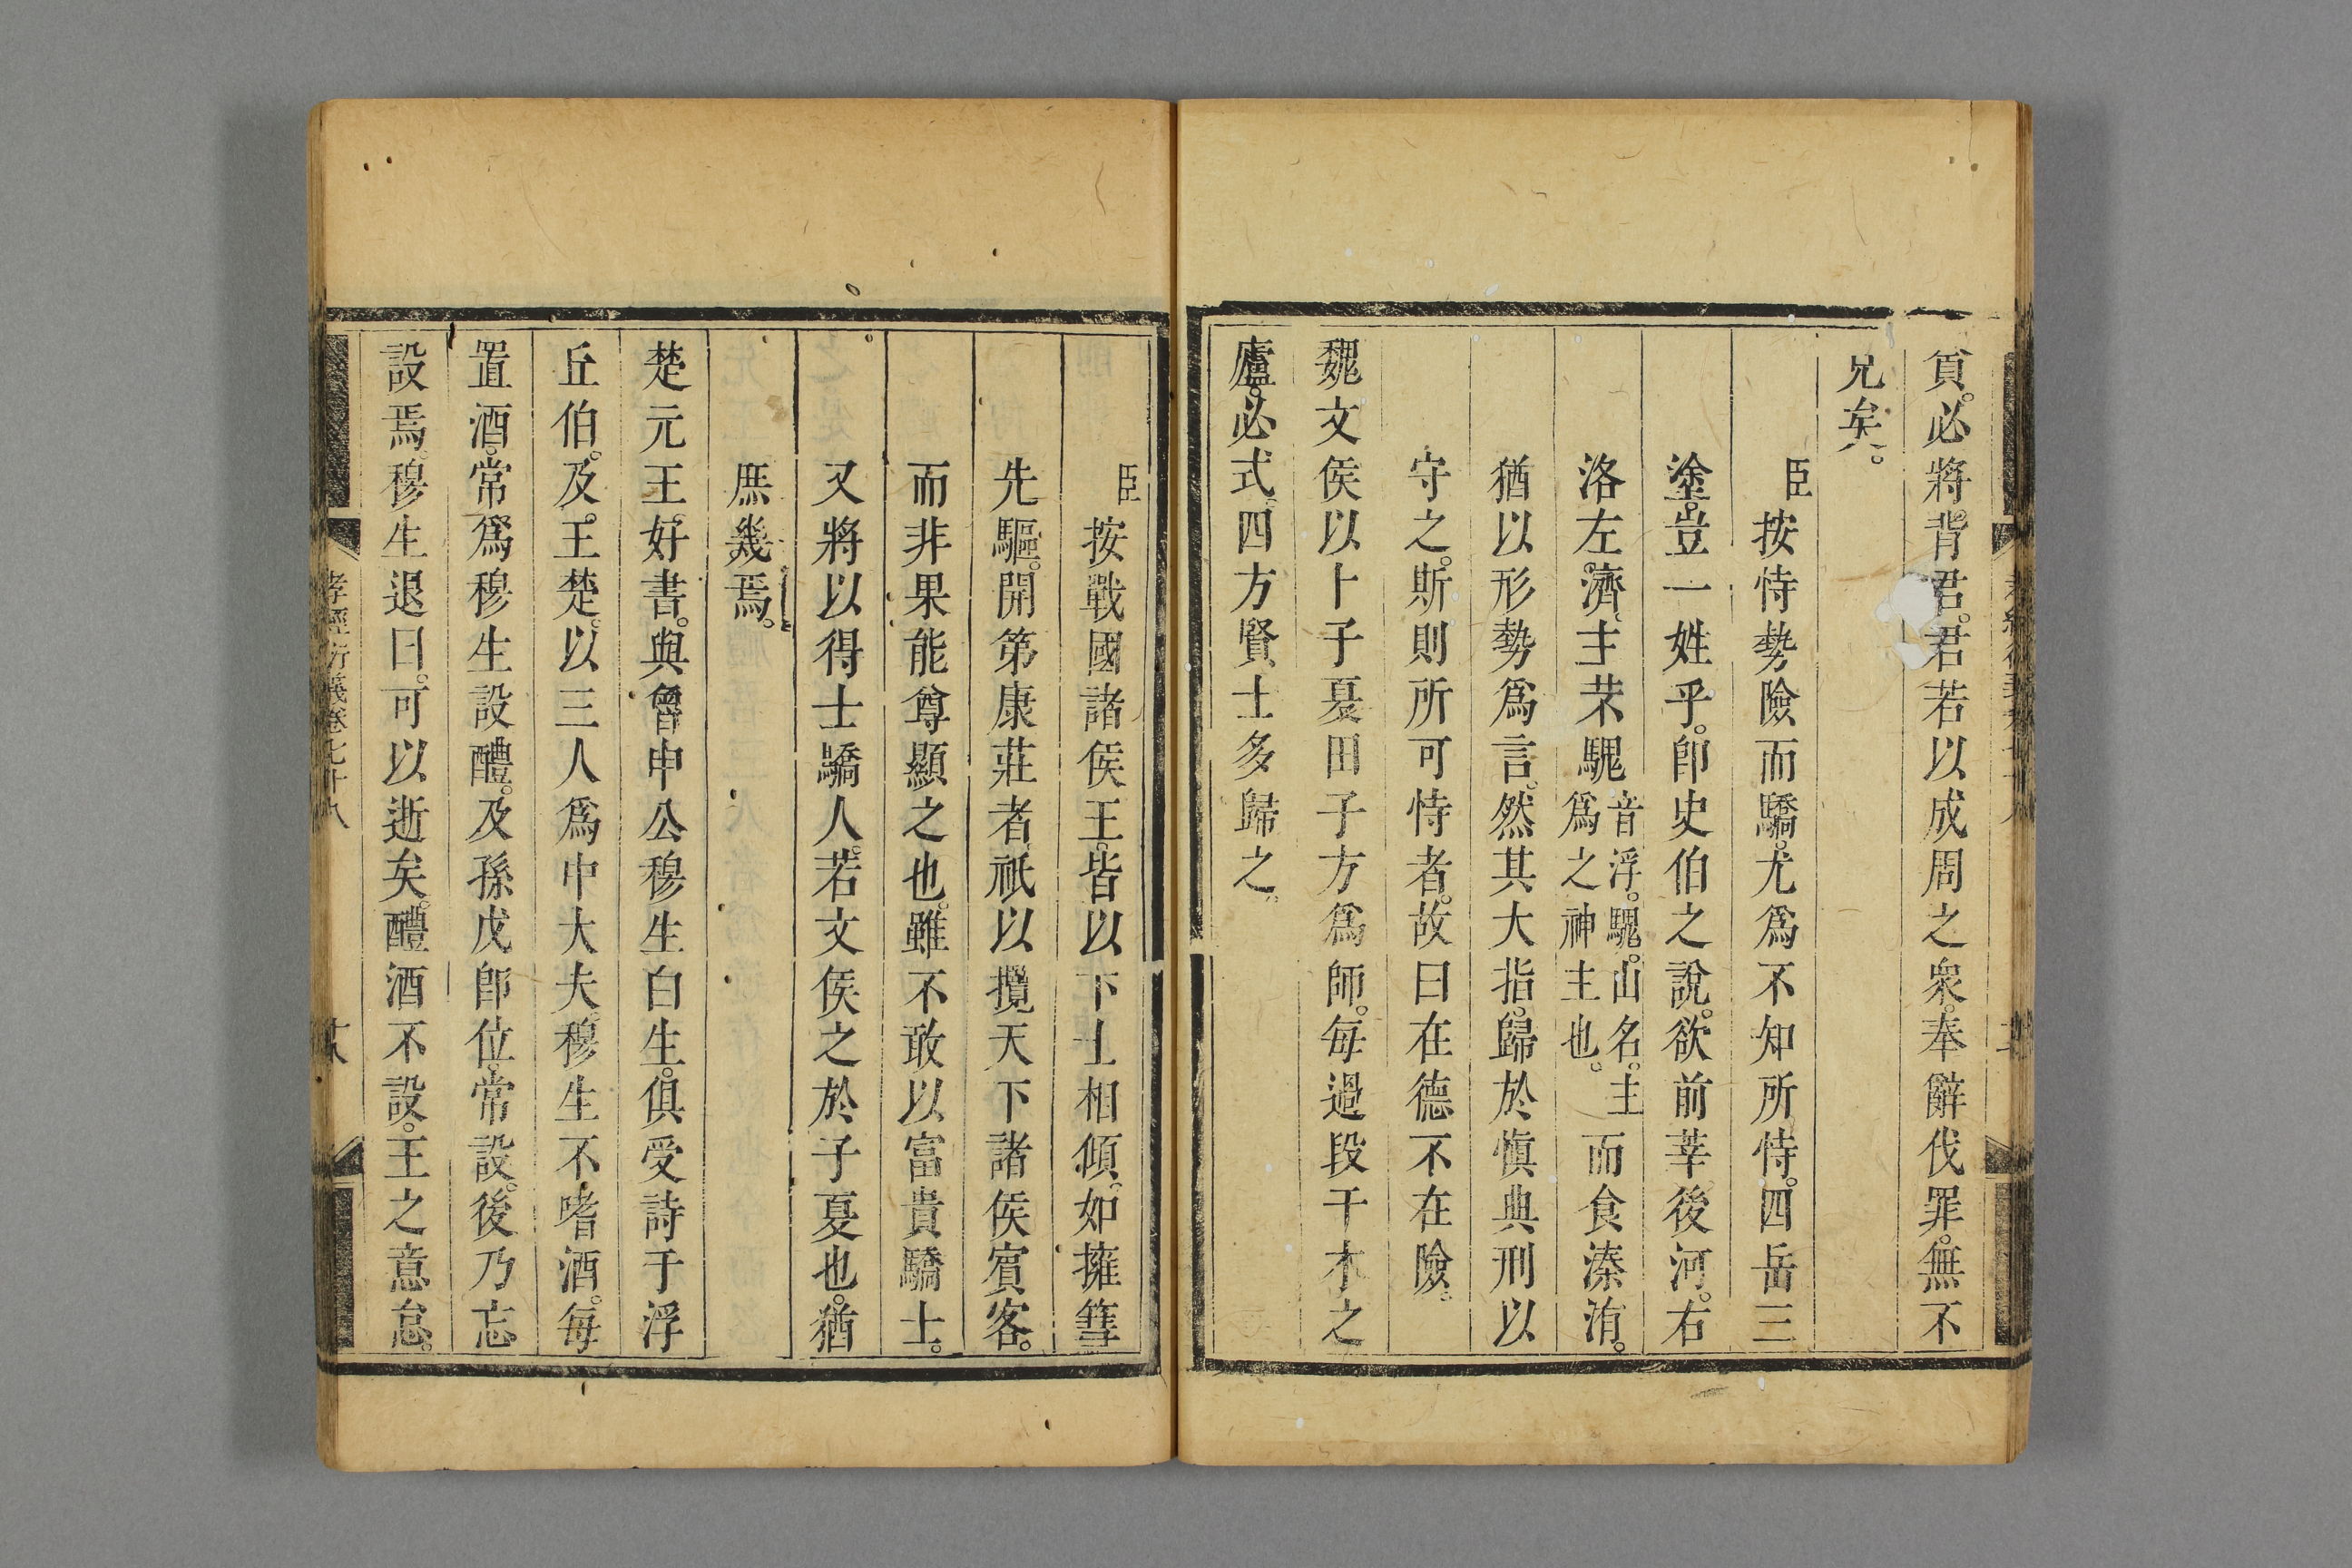 貟。必將背君。君若以成周之衆。奉辭伐罪。無不
兄矣。
臣按恃勢險而驕。尤爲不知所恃。四岳三
塗。豈一姓乎。卽史伯之說。欲前莘後河。右
洛左濟。主芣騩音浮。騩。山名。主爲之神主也。而食溱洧。
猶以形勢爲言。然其大指。歸於愼典刑以
守之。斯則所可恃者。故曰在德不在險。
魏文侯以卜子夏田子方爲師。每過段干木之
廬。必式。四方賢士多歸之。
臣按戰國諸侯王。皆以下士相傾。如擁篲
先驅。開第康莊者。祇以攬天下諸侯賓客。
而非果能尊顯之也。雖不敢以富貴驕士。
又將以得士驕人。若文侯之於子夏也。猶
庶幾焉。
楚元王。好書。與魯申公穆生白生。俱受詩于浮
丘伯。及。王楚。以三人爲中大夫。穆生不嗜酒。每
置酒。常爲穆生設醴。及孫戊卽位。常設。後乃忘
設焉。穆生退曰。可以逝矣。醴酒不設。王之意怠。
孝經衍義卷七十八